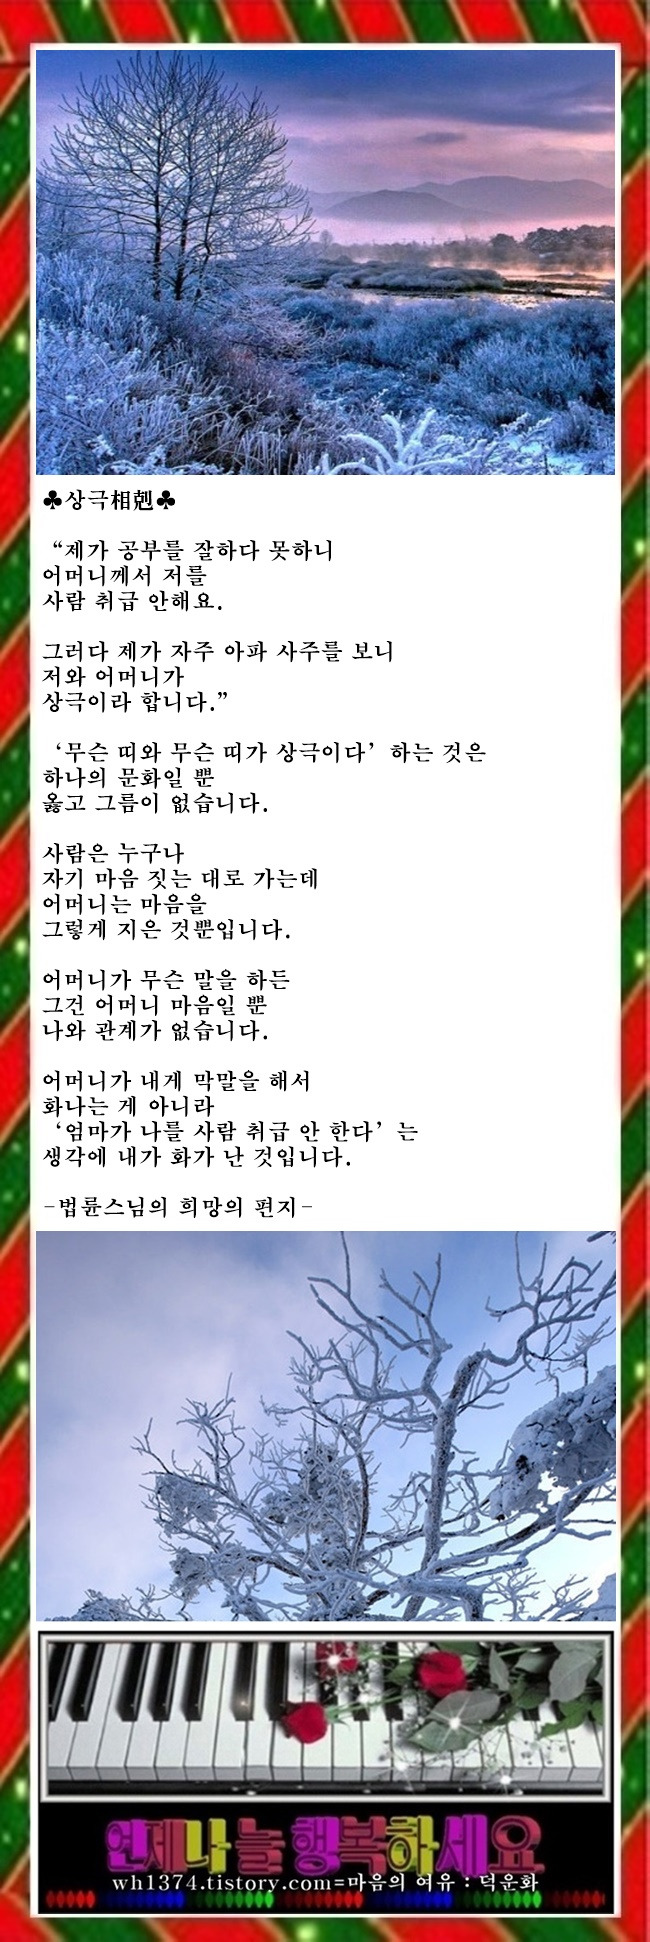 ♣상극相剋♣
“제가 공부를 잘하다 못하니
어머니께서 저를
사람 취급 안해요.
그러다 제가 자주 아파 사주를 보니
저와 어머니가
상극이라 합니다.”
‘무슨 띠와 무슨 띠가 상극이다’ 하는 것은
하나의 문화일 뿐
옳고 그름이 없습니다.
사람은 누구나
자기 마음 짓는 대로 가는데
어머니는 마음을
그렇게 지은 것뿐입니다.
어머니가 무슨 말을 하든
그건 어머니 마음일 뿐
나와 관계가 없습니다.
어머니가 내게 막말을 해서
화나는 게 아니라
‘엄마가 나를 사람 취급 안 한다’ 는
생각에 내가 화가 난 것입니다.
-법륜스님의 희망의 편지-
언제나 늘 행복하세요
wh1374.tistory.com=마음의 여유 : 덕운화